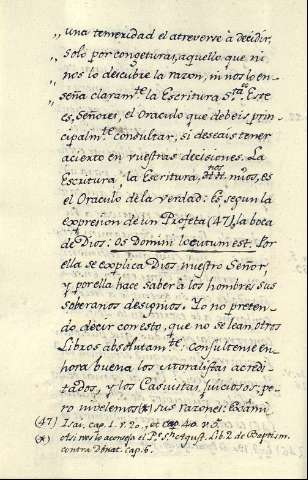 ,, una temeridad el atreverse à decidir,
,, solo por congeturas, aquello, que ni
,, nos lo descubre la razon, ni nos lo en-
,, seña claram.te la Escritura S.ta Este
es, Señores, el Oraculo que debeis prin-
cipalm.te consultar, si deseais tener
acierto en vuestras decisiones. La
Escritura, la Escritura, míos, es
el Oraculo de la verdad: Es, segun la
expresion de un Profeta (47), la boca
de Dios: Os Domini locutum est. Por
ella se explica Dios nuestro Señor,
y por ella hace saber à los hombres sus
soberanos designios. Yo no preten-
do, decir con esto, que no se lean otros
Libros absolutam.te: consultense en-
hora buena los Moralistas acredi-
tados, y los Casuistas juiciosos; pe-
ro nivelemos (*) sus razones: Exami
(47) Isai. cap. 1. v. 20., et cap. 40. v. 5.
(*) Asi nos lo aconseja el P.e S.n Agust. Lib. 2 de Baptism.
contra Donat. cap. 6.